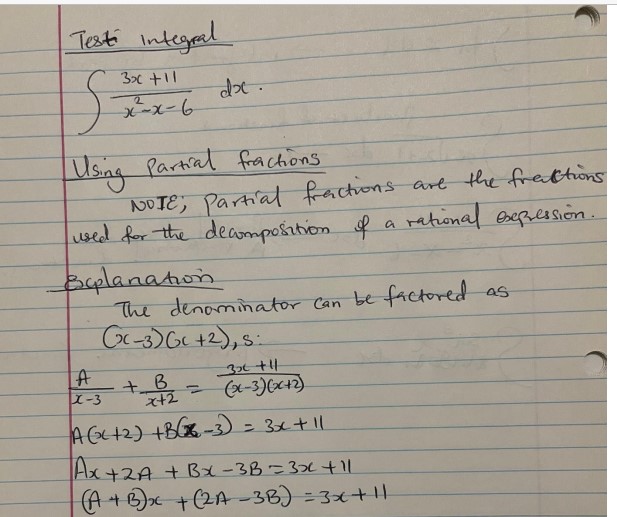 Test integral
∫ 3x + 11 / x² - x - 6 dx.
Using Partial fractions
NOTE; Partial fractions are the fractions
used for the decomposition of a rational expression.
Explanation
The denominator can be factored as
(x-3)(x+2), s:
A / x-3 + B / x+2 = 3x + 11 / (x-3)(x+2)
A(x+2) + B(x-3) = 3x + 11
Ax + 2A + Bx - 3B = 3x + 11
(A + B)x + (2A - 3B) = 3x + 11